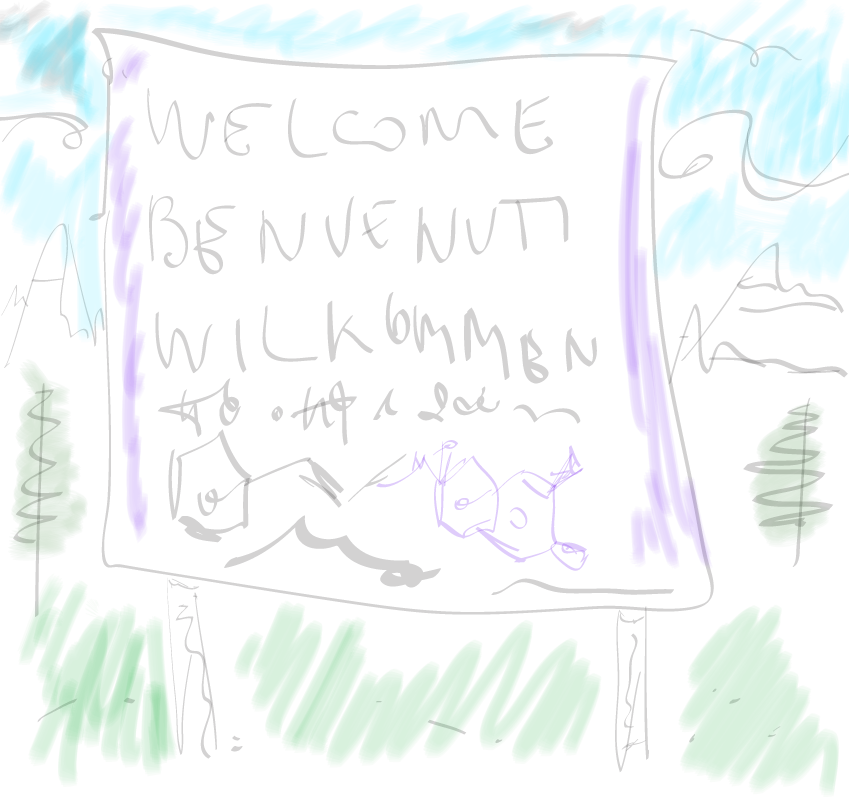 WELCOME
BENVENUTI
WILKOMMEN